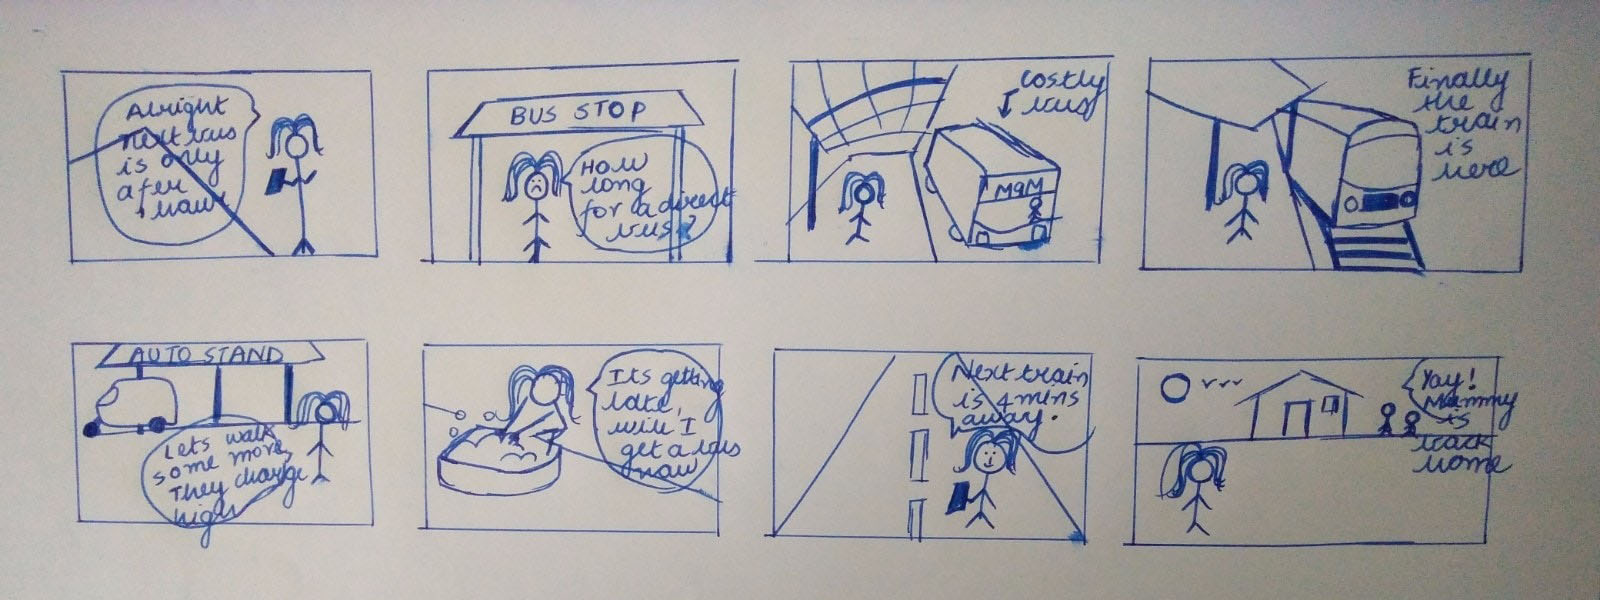 Alright
next bus
is only
after
1 hour
BUS STOP
HOW
long
for a direct
bus?
Costly
bus
M9M
Finally
the
train
is
here
AUTO STAND
Lets walk
some more,
They charge
high
Its getting
late,
will I
get a bus
now
Next train
is 4 mins
away.
Yay!
Mummy
is
back
home